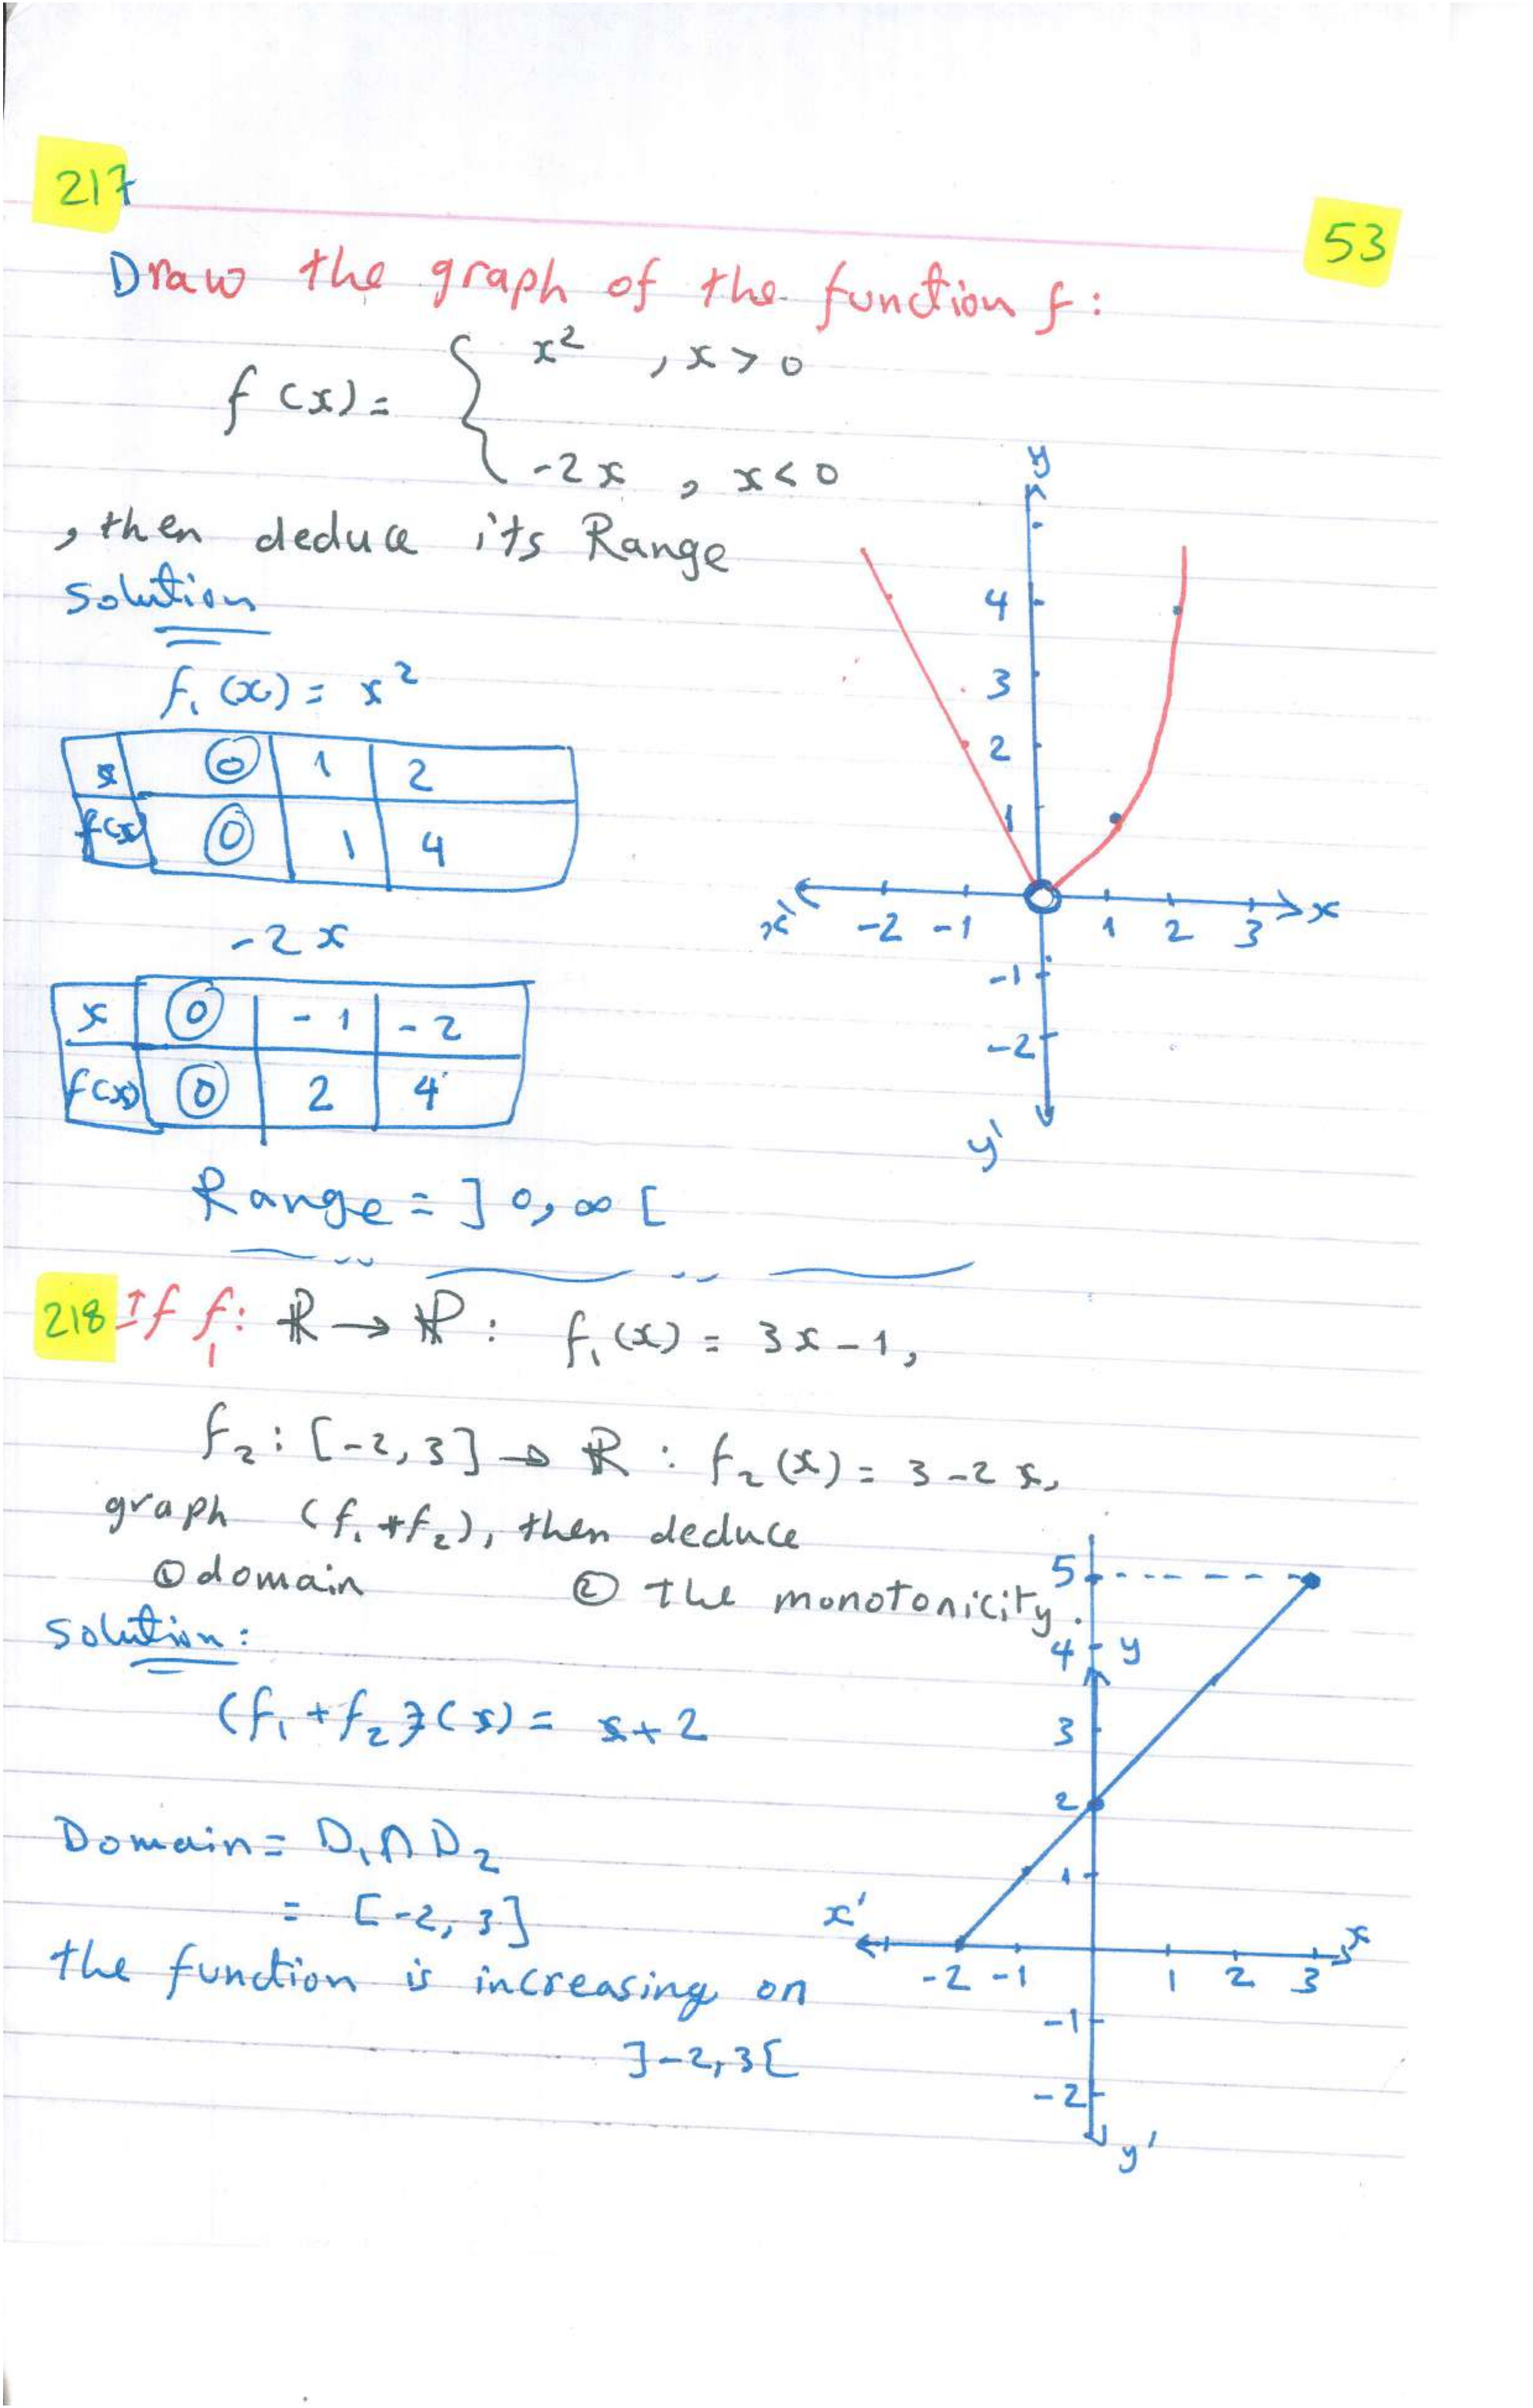 217
53
Draw the graph of the function f:
f(x) = { x² , x > 0
-2x , x < 0
, then deduce its Range
solution
f₁(x) = x²
x 0 1 2
f(x) 0 1 4
-2x
x 0 -1 -2
f(x) 0 2 4
Range = ]0, ∞[
y
4
3
2
1
x' -2 -1 1 2 3 x
-1
-2
y'
218 If f₁: ℝ → ℝ : f₁(x) = 3x - 1,
f₂: [-2, 3] → ℝ : f₂(x) = 3 - 2x,
graph (f₁ + f₂), then deduce
① domain ② the monotonicity.
solution:
(f₁ + f₂)(x) = x + 2
Domain = D₁ ∩ D₂
= [-2, 3]
the function is increasing on
]-2, 3[
5
4 y
3
2
1
x' x
-2 -1 1 2 3
-1
-2
y'